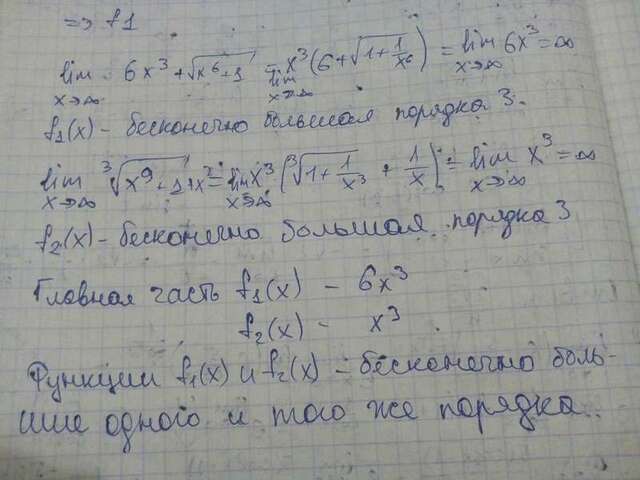 => f1
lim x→∞ 6x³ + √(x⁶+1) = lim x→∞ x³(6 + √(1 + 1/x⁶)) = lim x→∞ 6x³ = ∞
f₁(x) - бесконечно большая порядка 3.
lim x→∞ ∛(x⁹+1) + x² = lim x→∞ x³(∛(1 + 1/x³) + 1/x) = lim x→∞ x³ = ∞
f₂(x) - бесконечно большая порядка 3
Главная часть f₁(x) - 6x³
f₂(x) - x³
Функции f₁(x) и f₂(x) - бесконечно боль-
шие одного и того же порядка.